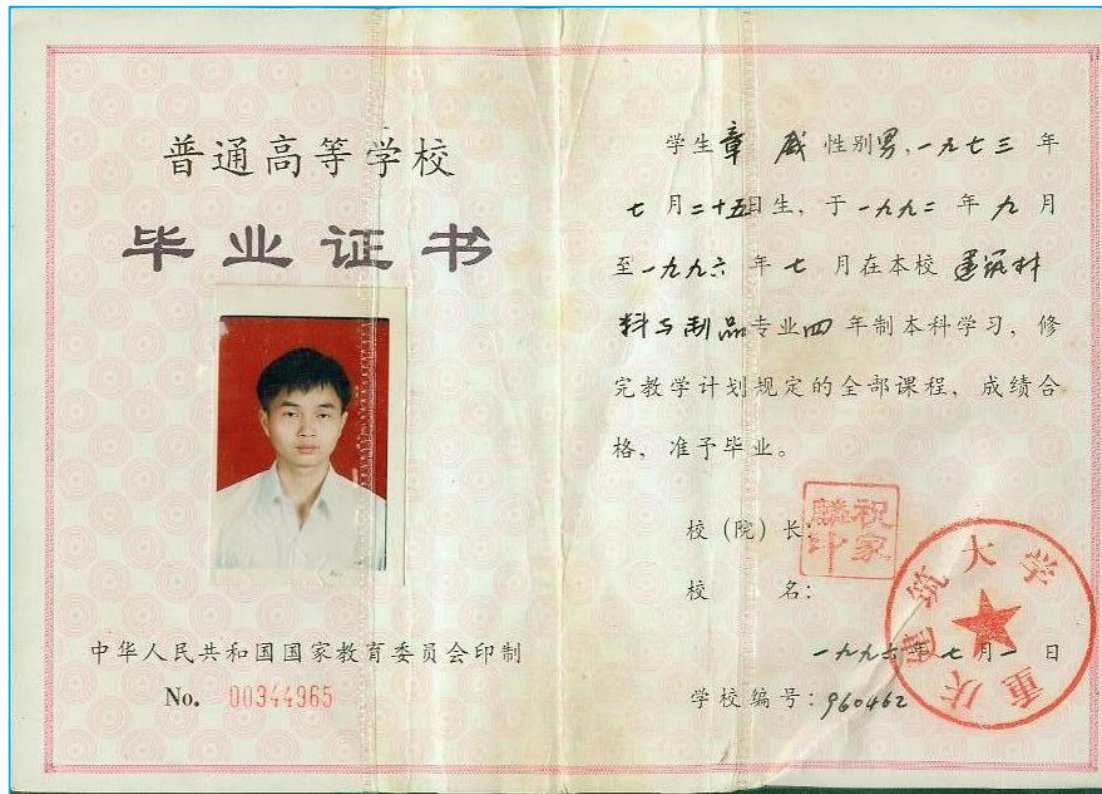 普通高等学校
毕业证书
中华人民共和国国家教育委员会印制
No. 00344965
学生章威 性别男,一九七三 年
七 月二十五日生, 于一九九二 年 九 月
至一九九六 年 七 月在本校 建筑材
料与制品专业四 年制本科学习, 修
完教学计划规定的全部课程, 成绩合
格, 准予毕业。
校 (院) 长:
祝家麟印
校 名:
重庆建筑大学
一九九六年七月一日
学校编号: 960462